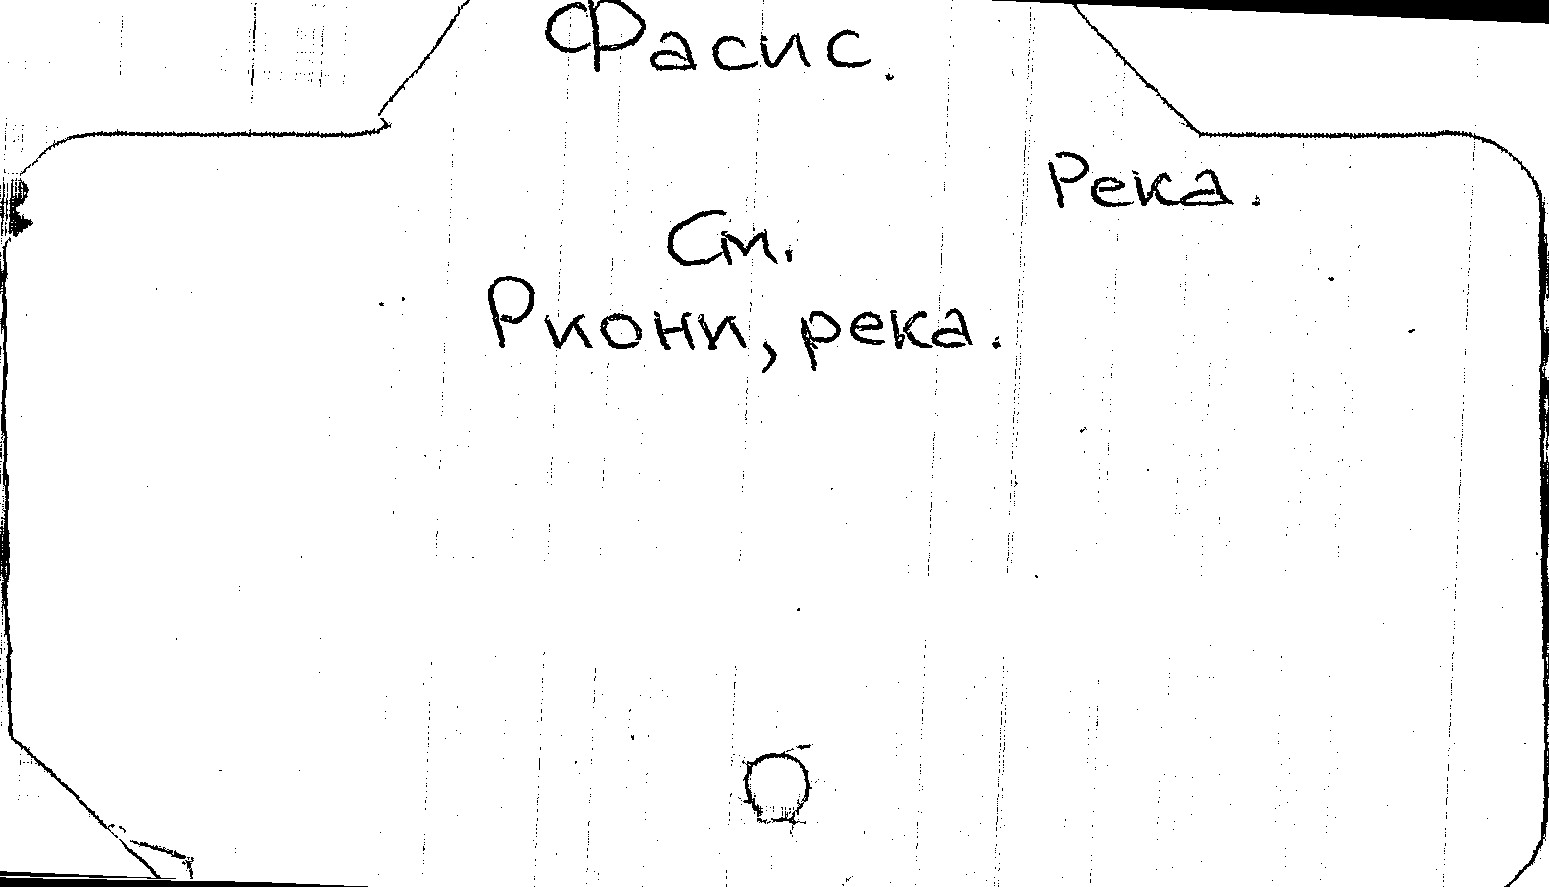 Фасис.
Река.
См.
Риони, река.